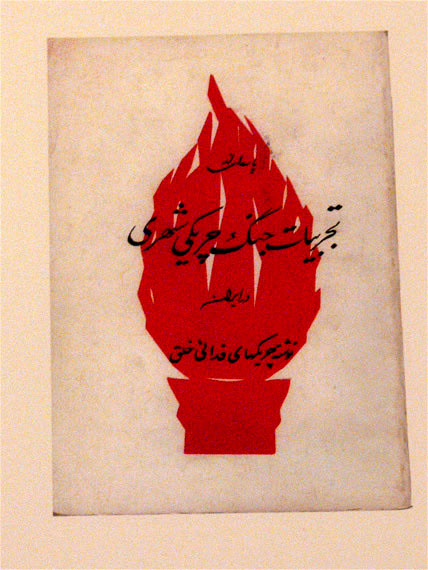 پاره‌ای از
تجربیات جنگ چریکی شهری
در ایران
نوشته چریکهای فدائی خلق